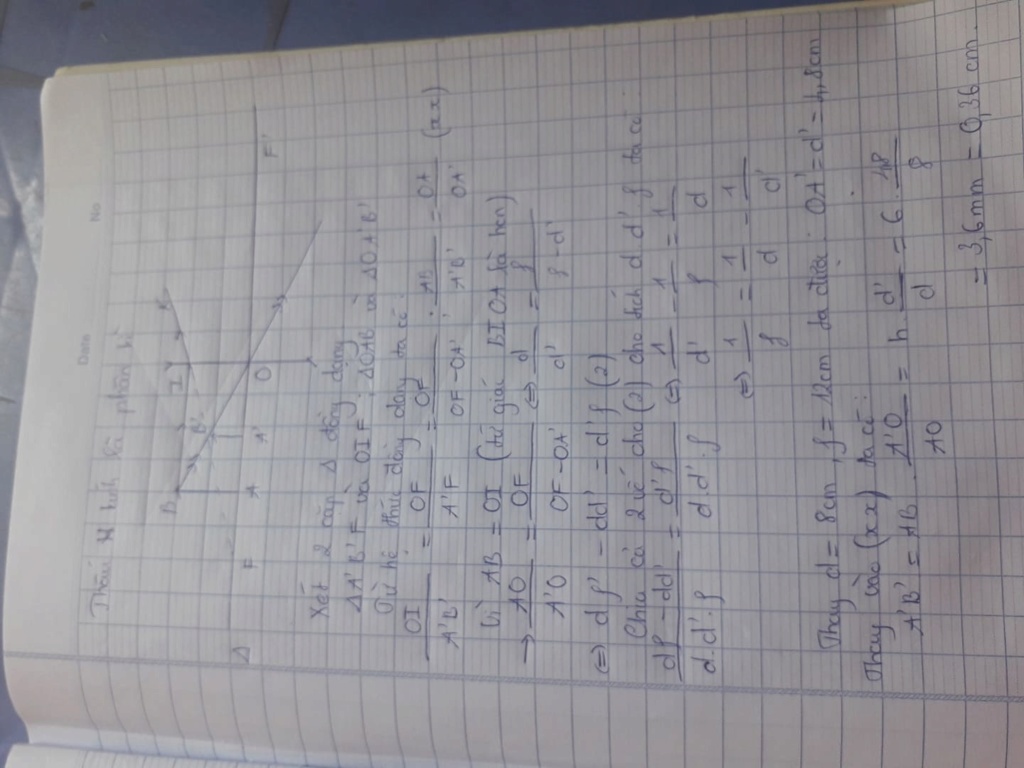 No
Date
Thấu kính là phân kì
B I K
B'
Δ F A A' O F'
Xét 2 cặp Δ đồng dạng
Δ A'B'F và OIF; ΔOAB và ΔOA'B'
Từ hệ thức đồng dạng ta có:
OI/A'B' = OF/A'F = OF/OF-OA' ; AB/A'B' = OA/OA' (xx)
Vì AB = OI (tứ giác BIOA là hcn)
→ AO/A'O = OF/OF-OA' ⇔ d/d' = f/f-d'
⇔ df - dd' = d'f (2)
Chia cả 2 vế cho (2) cho tích d d' f ta có:
df - dd'/d.d'.f = d'f/d.d'.f ⇔ 1/d' - 1/f = 1/d
⇔ 1/f = 1/d' - 1/d
Thay d = 8cm, f = 12cm ta được: OA' = d' = 4,8cm
Thay vào (xx) ta có:
A'B' = AB . A'O/AO = h d'/d = 6 . 4,8/8
= 3,6mm = 0,36cm.